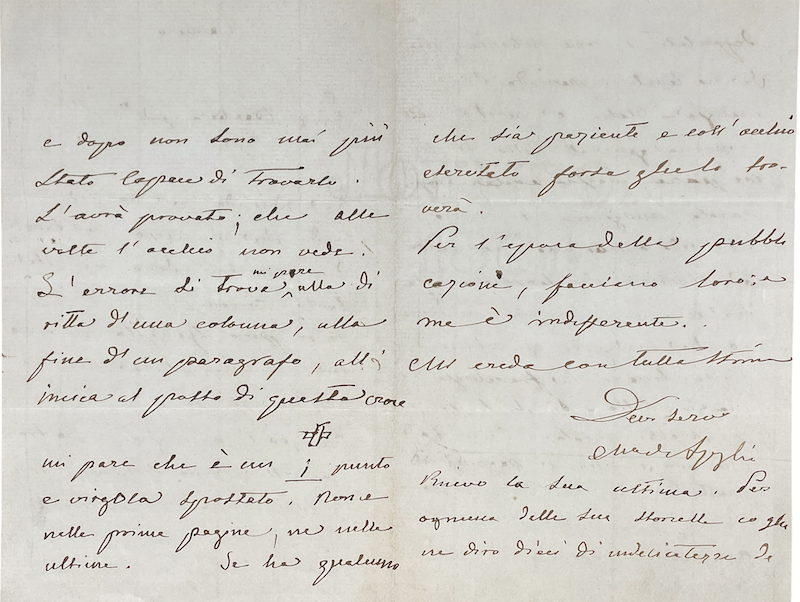 e dopo non sono mai più
stato capace di trovarlo.
L'avrà provato; che alle
volte l'occhio non vede.
L'errore si trova, mi pare, alla di
ritta d'una colonna, alla
fine d'un paragrafo, all'
incica al posto di questa croce
mi pare che è un i punto
e virgola spostato. Non è
nelle prime pagine, ne nelle
ultime. Se ha qualcuno
che sia paziente e coll'occhio
esercitato forse glielo tro-
verà.
Per l'epoca della pubbli
cazione, facciano loro; a
me è indifferente..
Mi creda con tutta stima
Dev servo
Ricevo la sua ultima. Per
ognuna delle sue storielle io gliu
ne dirò dieci di indelicatezze de